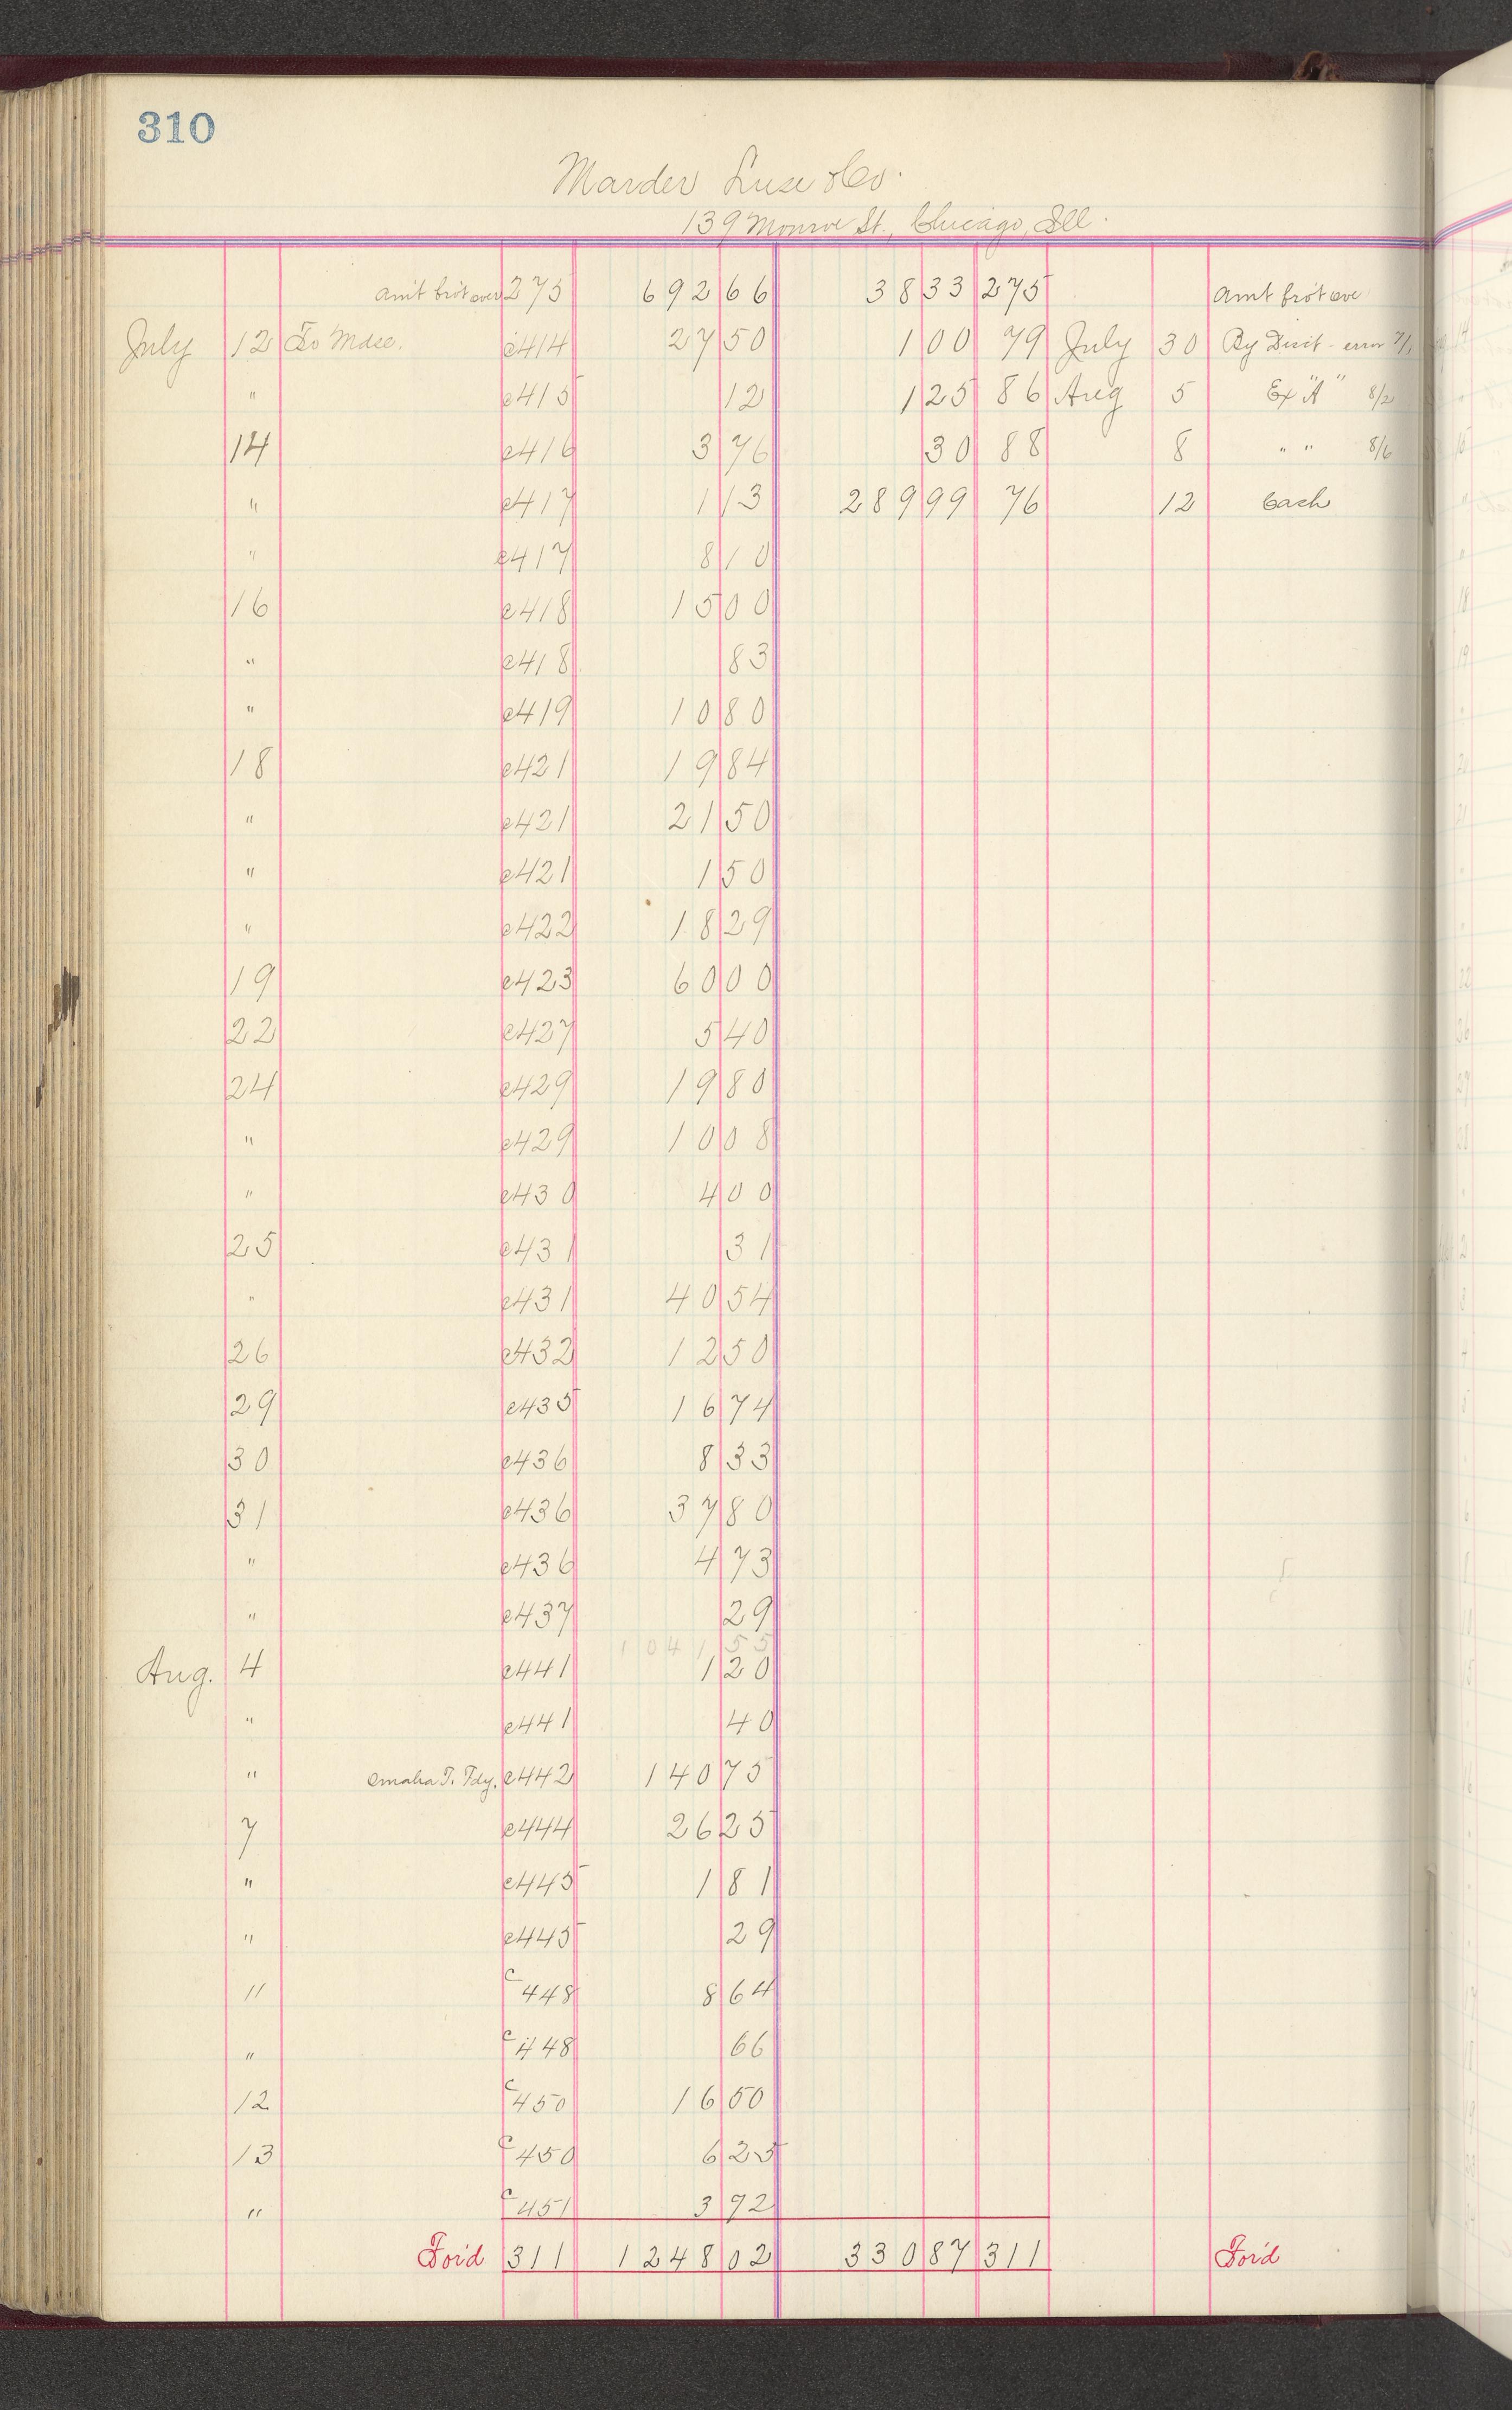 310
Marder Luse & Co.
139 Monroe St., Chicago, Ill.
Amt brôt over 275 692 66 38 33 275 Amt brôt over
July 12 To Mdse. c414 27 50 1 00 79 July 30 By Disct - error
" c415 12 1 25 86 Aug 5 Ex "A" 8/2
14 c416 3 76 30 88 8 " " 8/6
" c417 1 13 289 99 76 12 Cash
" c417 8 10
16 c418 15 00
" c418 83
" c419 10 80
18 c421 19 84
" c421 21 50
" c421 1 50
" c422 18 29
19 c423 60 00
22 c427 5 40
24 c429 19 80
" c429 10 08
" c430 4 00
25 c431 31
" c431 40 54
26 c432 12 50
29 c435 16 74
30 c436 8 33
31 c436 37 80
" c436 4 73
" c437 29
1041 55
Aug. 4 c441 1 20
" c441 40
" Omaha T. Fdy. c442 140 75
7 c444 26 25
" c445 1 81
" c445 29
11 c448 8 64
" c448 66
12 c450 16 00
13 c450 6 25
" c451 3 92
For'd 311 1248 02 330 87 311 For'd